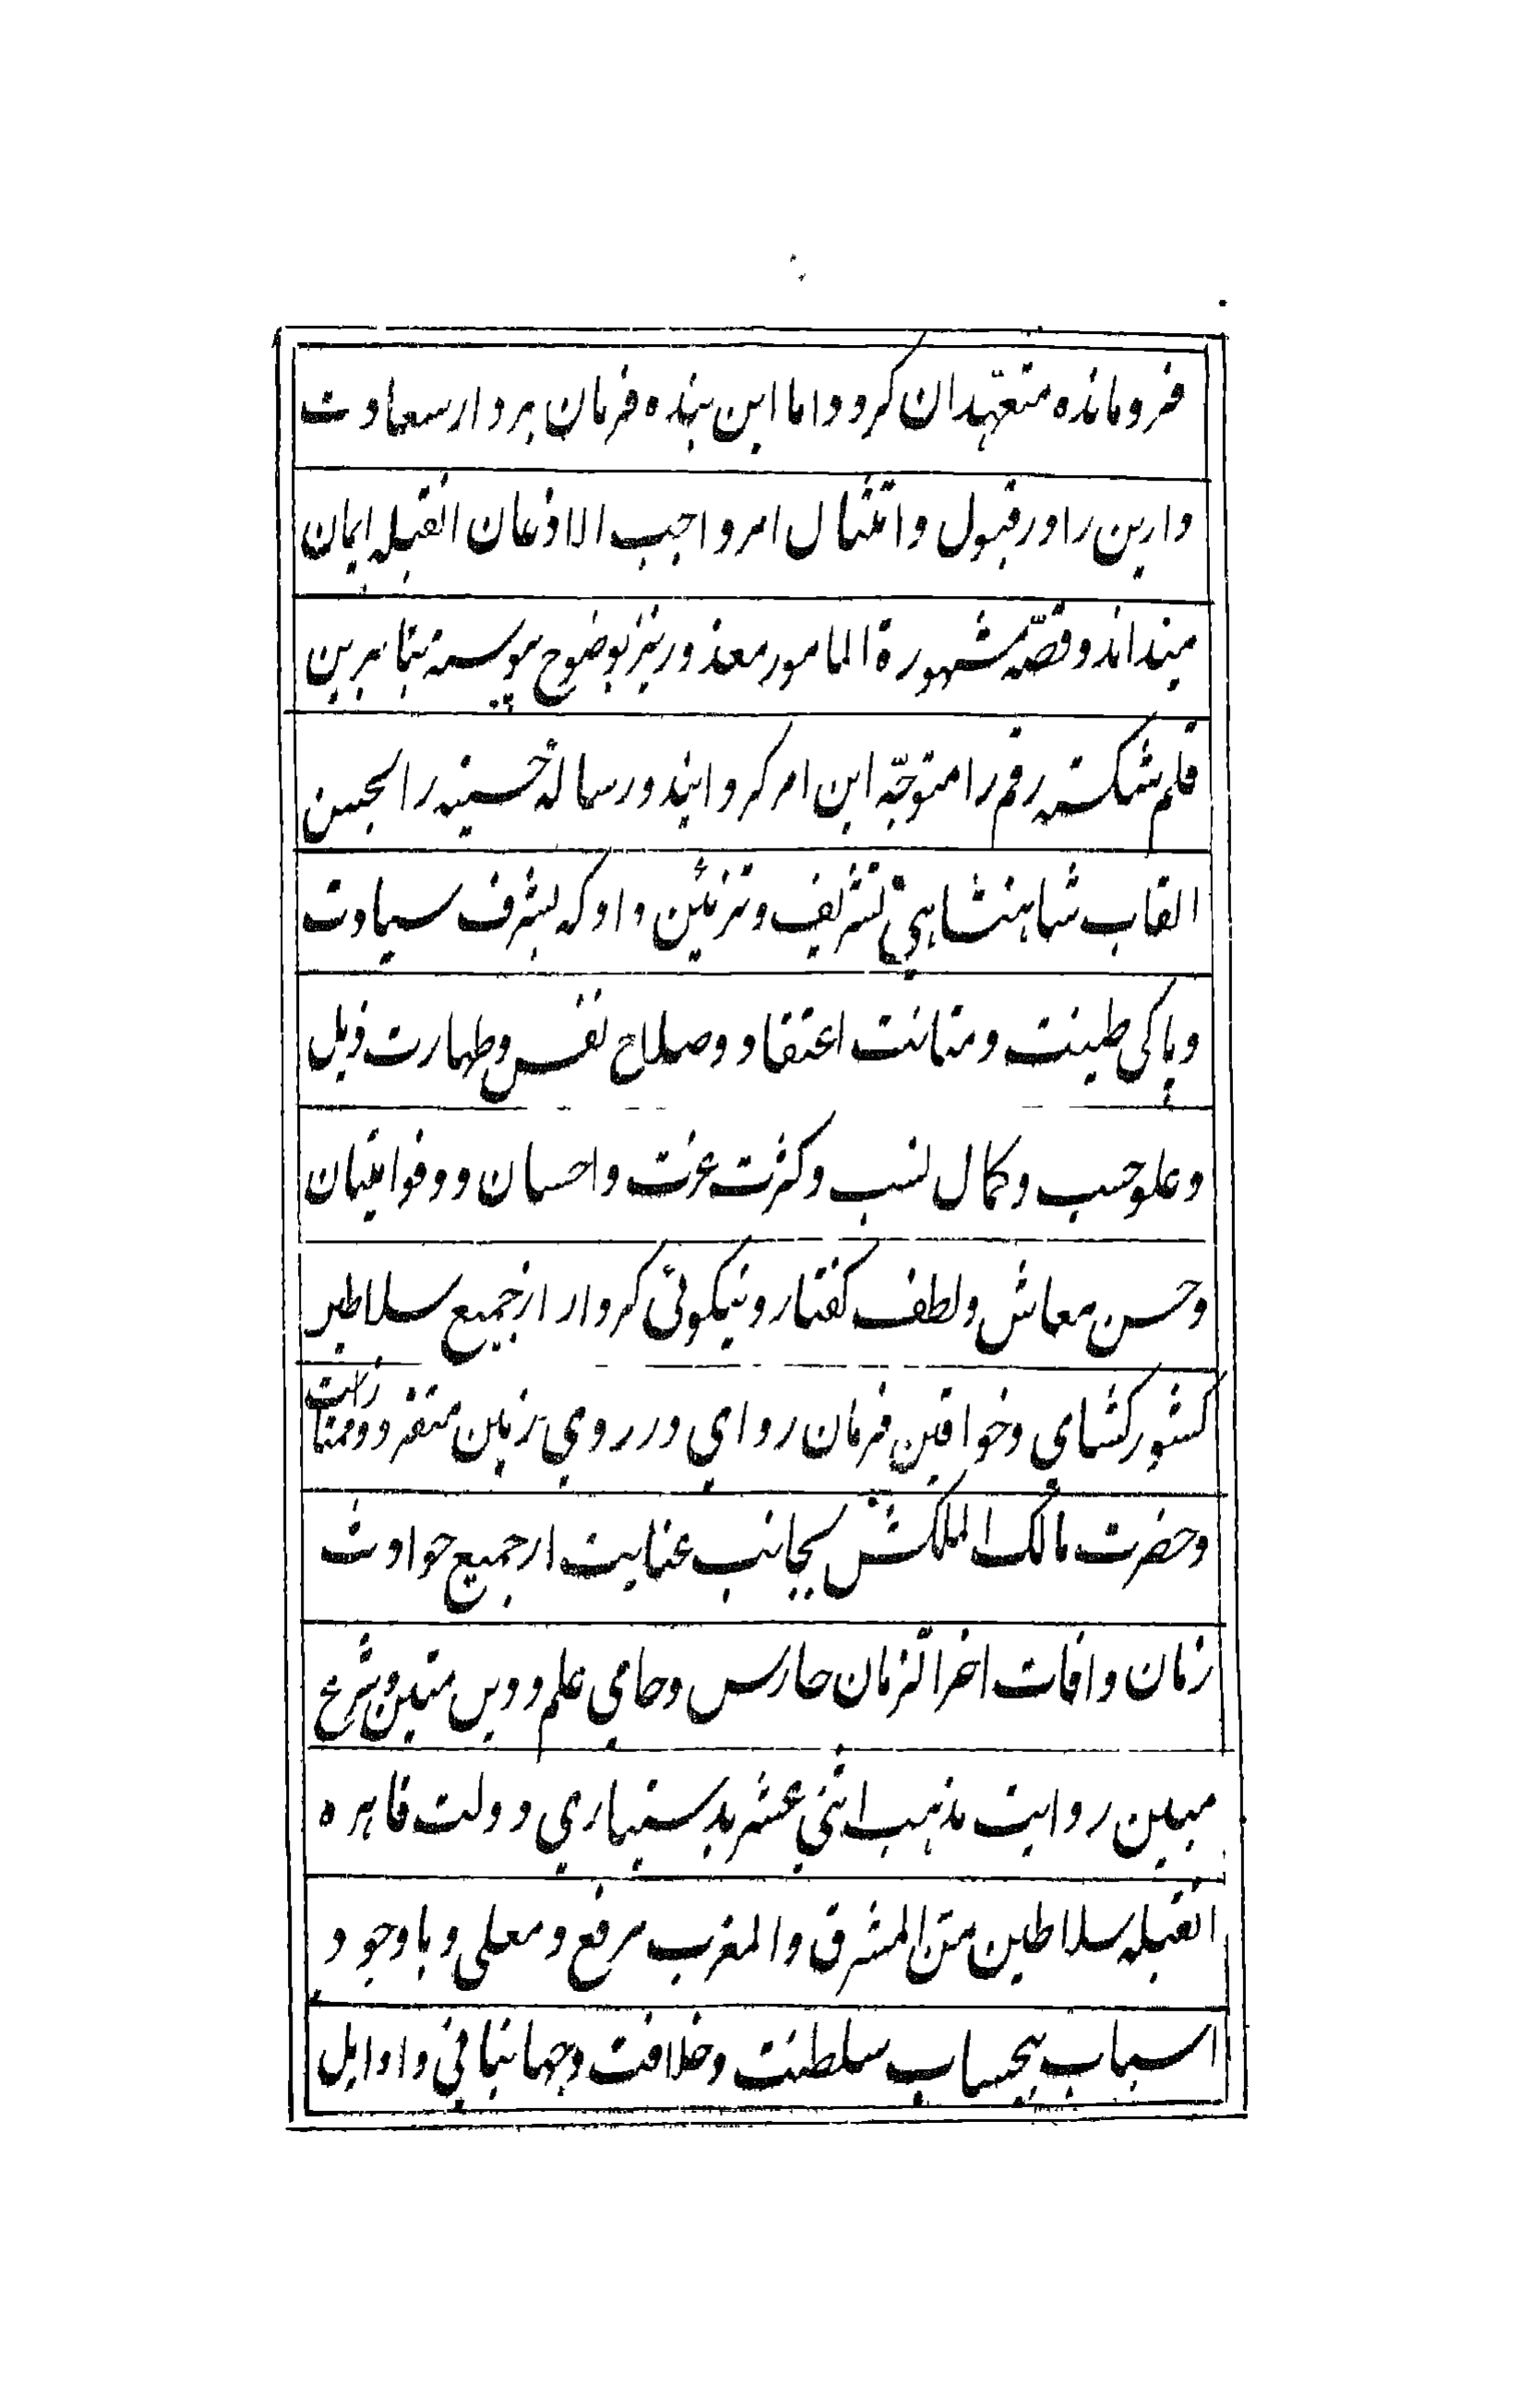 فرومانده متعهّد ان کردد اما این بنده فرمان بردار سعادت
دارین را در قبول و امتثال امر واجب الاذعان انقبله ایمان
میداند و قصّه مشهورة المامور معذور نیز بوضوح پیوسته بنابرین
قلم شکسته رقم را متوجّه این امر کردانید و رسالهٔ حسنیه را بحسن
القاب شاهنشاهی تشریف و تزئین داد که بشرف سیادت
و پاکی طینت و متانت اعتقاد و صلاح نفس و طهارت ذیل
و علو حسب و کمال نسب و کثرت عزت و احسان و وفوایقان
و حسن معاش و لطف کفتار و نیکوئی کردار از جمیع سلاطین
کشور کشای و خواقین فرمان روای در روی زمین متفرد و ممتاز است
و حضرت مالک الملکش بجانب عنایت از جمیع حوادث
زمان و افات اخر الزمان حارس و حامی علم و دین متین و شرع
مبین روایت مذهب اثنی عشر بدستیاری دولت قاهره
انقبله سلاطین من المشرق و المغرب مرفع و معلی و با وجود
اسباب بیحساب سلطنت و خلافت و جهانبانی و اوایل